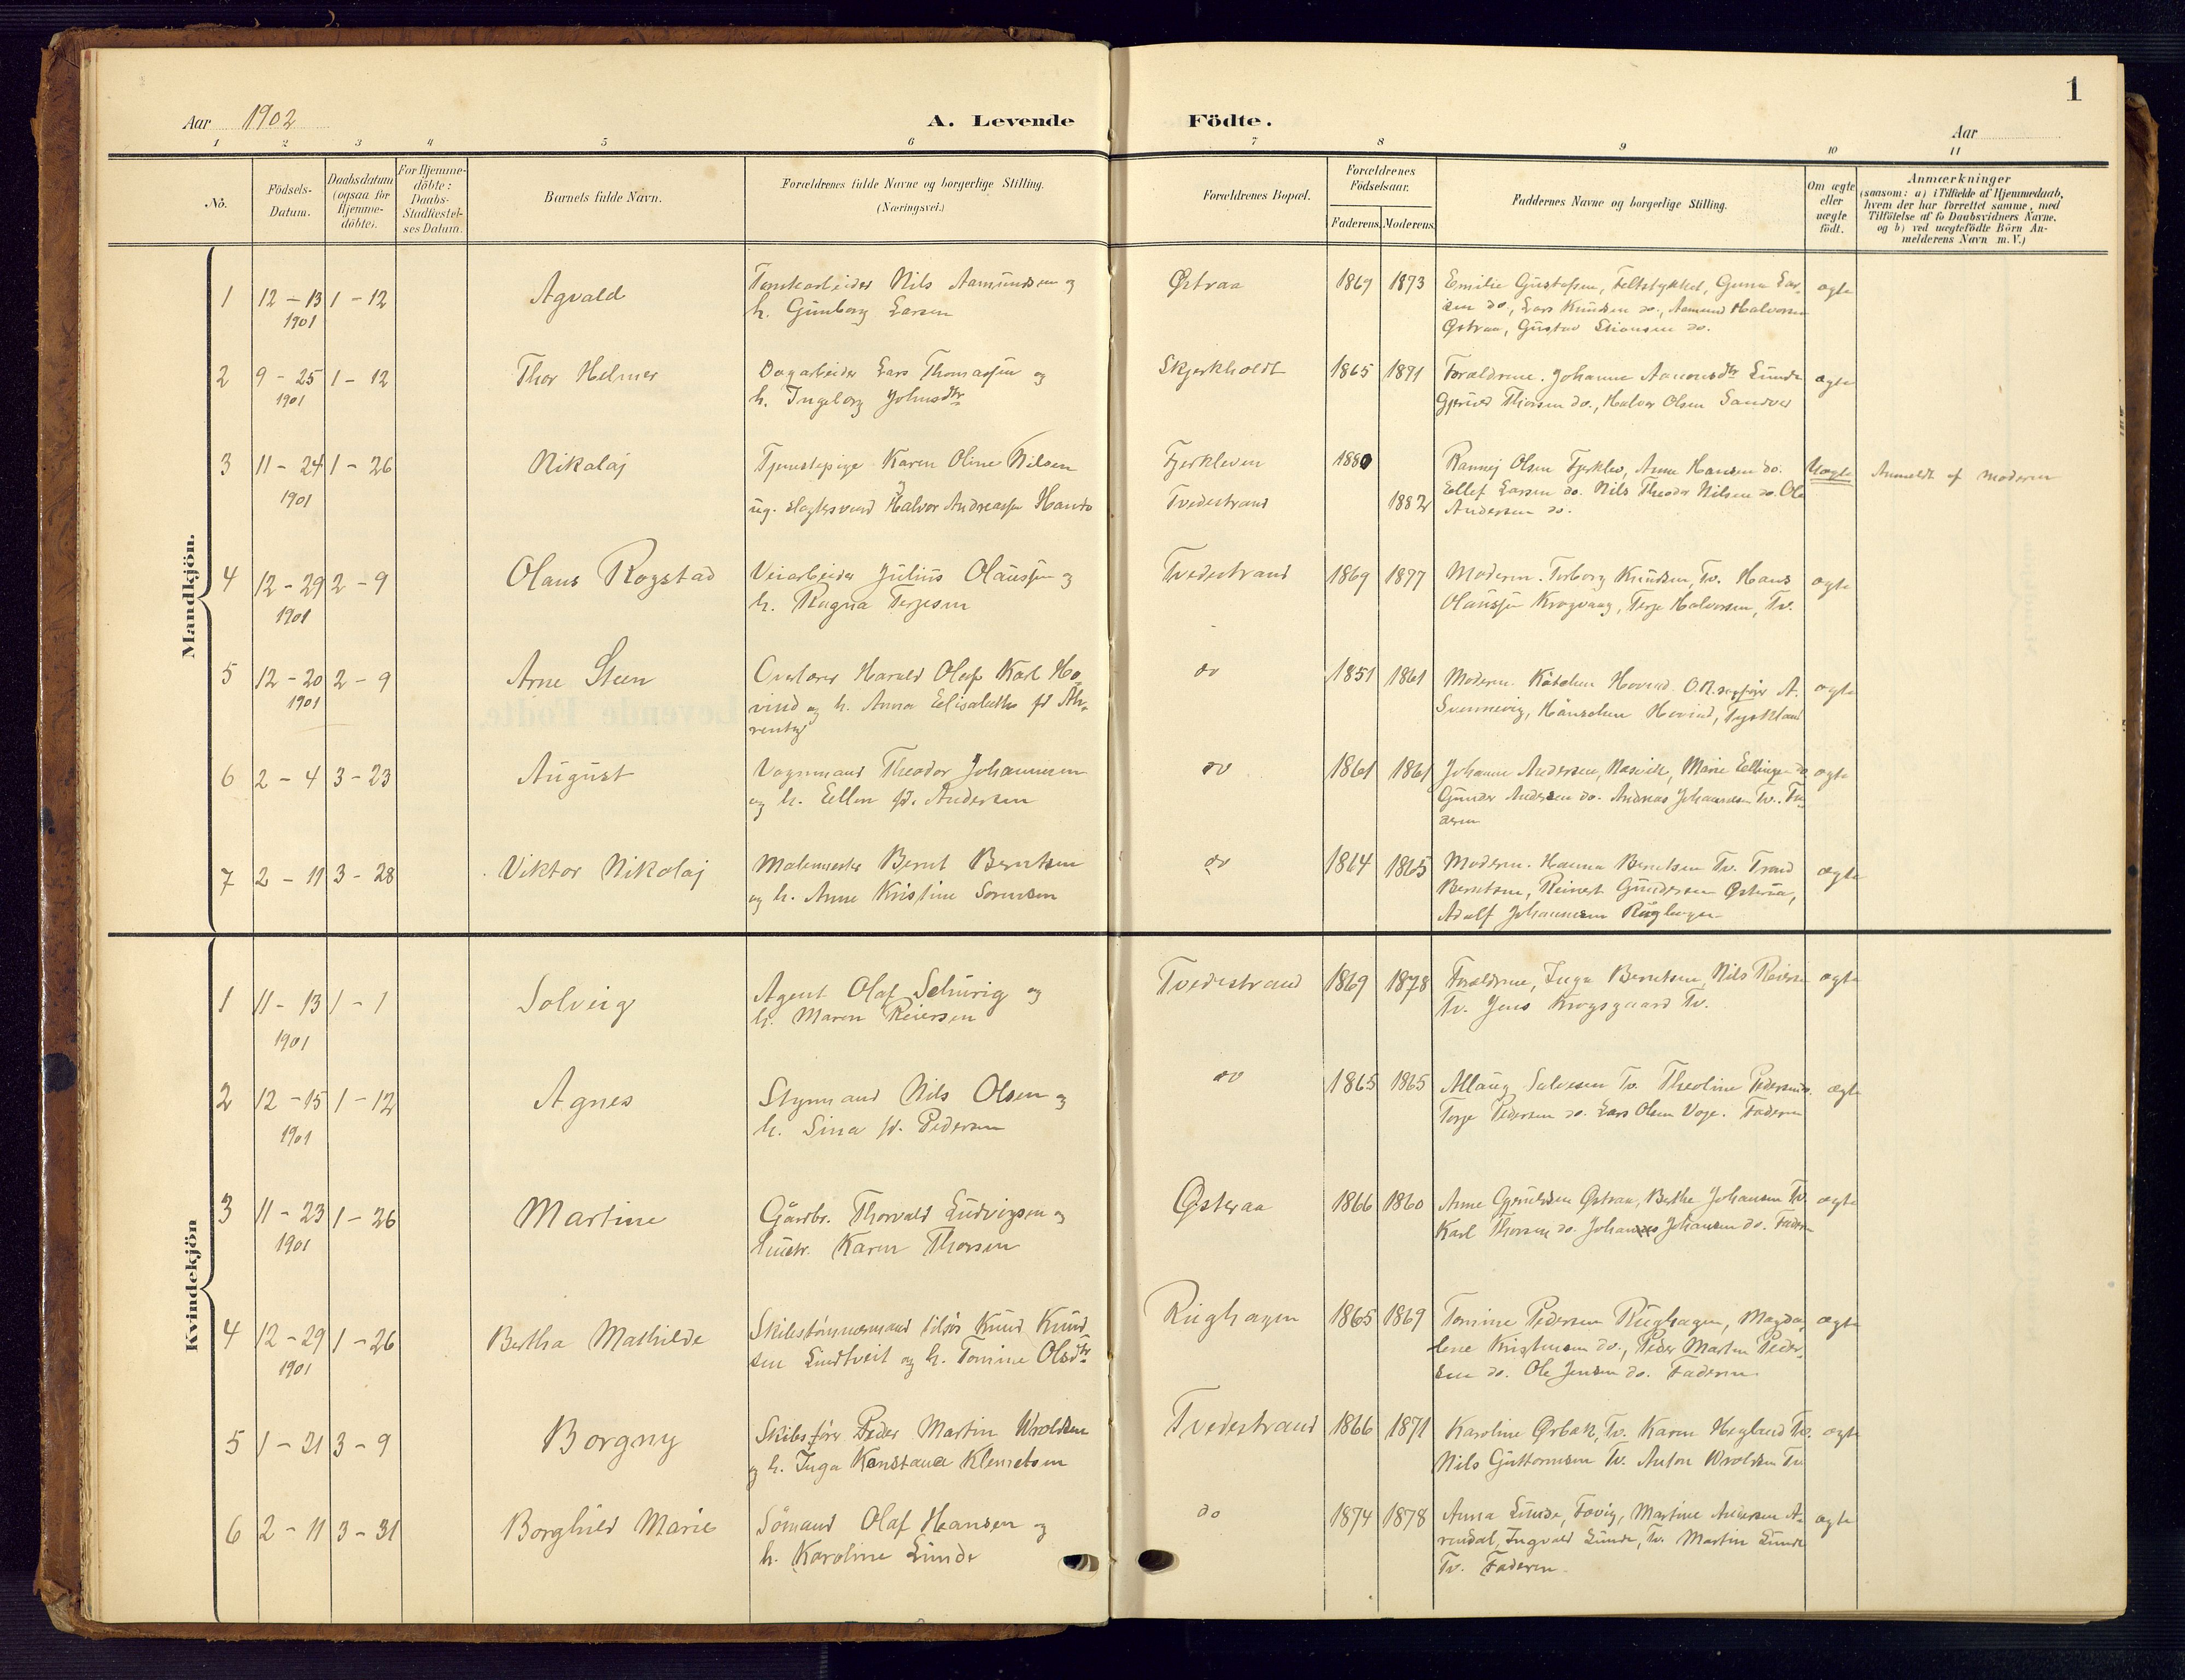 1
Aar 1902
A. Levende Födte.
Aar
1 2 3 4 5 6 7 8 9 10 11
No.
Födsels-Datum.
Daabsdatum (ogsaa for Hjemme-döbte).
For Hjemme-döbte: Daabs-Stadfæstel-ses Datum.
Barnets fulde Navn.
Forældrenes fulde Navne og borgerlige Stilling.
(Næringsvei.)
Forældrenes Bopæl.
Forældrenes Födselsaar.
Faderens. Moderens.
Faddernes Navne og borgerlige Stilling.
Om ægte eller uægte födt.
Anmærkninger
(saasom: a) i Tilfælde af Hjemmedaab,
hvem der har forrettet samme, med
Tilföielse af to Daabsvidners Navne,
og b) ved uægtefödte Börn An-
melderens Navn m. V.)
Mandkjön.
1 12-13 1901 1-12 Agvald
Nils Aamundsen og
h. Gunborg Larsen
Østraa 1869 1873
Emilie Gustafsen, Feltstykket, Gunne Lar-
sen do, Lars Knudsen do., Aamund Halvorsen
Østraa, Gustav do.
ægte
2 9-25 1901 1-12 Thor Helmer
Dagarbeider Lars Thomassen og
h. Ingeborg Johnsdtr
Skjerkholdt 1865 1871
Forældrene. Johanne Aanonsdtr Lunde
Thorsen do., Halvor Olsen Sandver
ægte
3 11-24 1901 1-26 Nikolaj
Tjenestepige Karen Oline Nilsen
ug. Halvor Andreassen
Fjerkleven 1880
Tvedestrand 1882
Olsen Fjerklev, Anne Hansen do.
Ellef Larsen do. Nils Theodor Nilsen do. Ole
Andersen do.
Uægte
Anmeldt af moderen
4 12-29 1901 2-9 Olaus Rogstad
Veiarbeider Julius Olaussen og
h. Ragna Terjesen
Tvedestrand 1869 1877
Moderen. Torborg Knudsen, Tv. Hans
Olaussen Krogvaag, Terje Halvorsen, Tv.
ægte
5 12-20 1901 2-9 Arne Steen
Overlærer Harald Olaf Karl Ho-
vind og h. Anna Elisabeth fd Ah-
rentz
do 1851 1861
Moderen. Hovind. O.R.sagfører A.
Svennevig, Hovind, Tyskland
ægte
6 2-4 3-23 August
Vognmand Theodor Johannesen
og h. Ellen fd. Andersen
do 1861 1861
Johanne Andersen, Marie Ellingsen do
Gunder Andersen do. Andreas Johannesen Tv. Fa-
deren
ægte
7 2-11 3-28 Viktor Nikolaj
Malermester Bernt Berntsen
og h. Anne Kristine Sørensen
do 1864 1865
Moderen. Hanna Berntsen Tv. Trond
Berntsen, Reinert Gundersen Østeraa,
Adolf Johannesen Rughagen
ægte
Kvindekjön
1 11-13 1901 1-1 Solveig
Agent Olaf Schürig og
h. Maren Reiersen
Tvedestrand 1869 1878
Forældrene, Inga Berntsen, Nils Reiersen
Tv. Jens Krogsgaard Tv.
ægte
2 12-15 1901 1-12 Agnes
Styrmand Nils Olsen og
h. Sina fd. Pedersen
do 1865 1865
Allaug Salvesen Tv. Theoline Pedersen do.
Terje Pedersen do. Lars Olsen Voje. Faderen
ægte
3 11-23 1901 1-26 Martine
Gaardbr. Thorvald Ludvigsen og
hustr. Karen Thorsen
Østeraa 1866 1860
Anne Østraa, Berthe Johansen Tv.
Karl Thorsen do. Johannes Johansen do. Faderen
ægte
4 12-29 1901 1-26 Bertha Mathilde
Skibstømmermand Knud Knud-
sen Lindtveit og h. Tomine Olsdtr
Rughagen 1865 1869
Tomine Pedersen Rughagen, Magda-
lene Kristensen do., Peder Martin Peder-
sen do. Ole Jensen do. Faderen.
ægte
5 1-21 3-9 Borgny
Skibsfører Peder Martin Wroldsen
og h. Inga Konstance Klemetsen
Tvedestrand 1866 1871
Karoline Ørbæk, Tv. Karen Hegland Tv.
Nils Guttormsen Tv. Anton Wroldsen Tv
ægte
6 2-11 3-31 Borghild Marie
Sømand Olaf Hansen og
h. Karoline Lunde
do 1874 1878
Anna Lunde, Martine Andersen A-
rendal, Ingvald Lunde, Tv. Martin Lunde
Tv. Faderen.
ægte